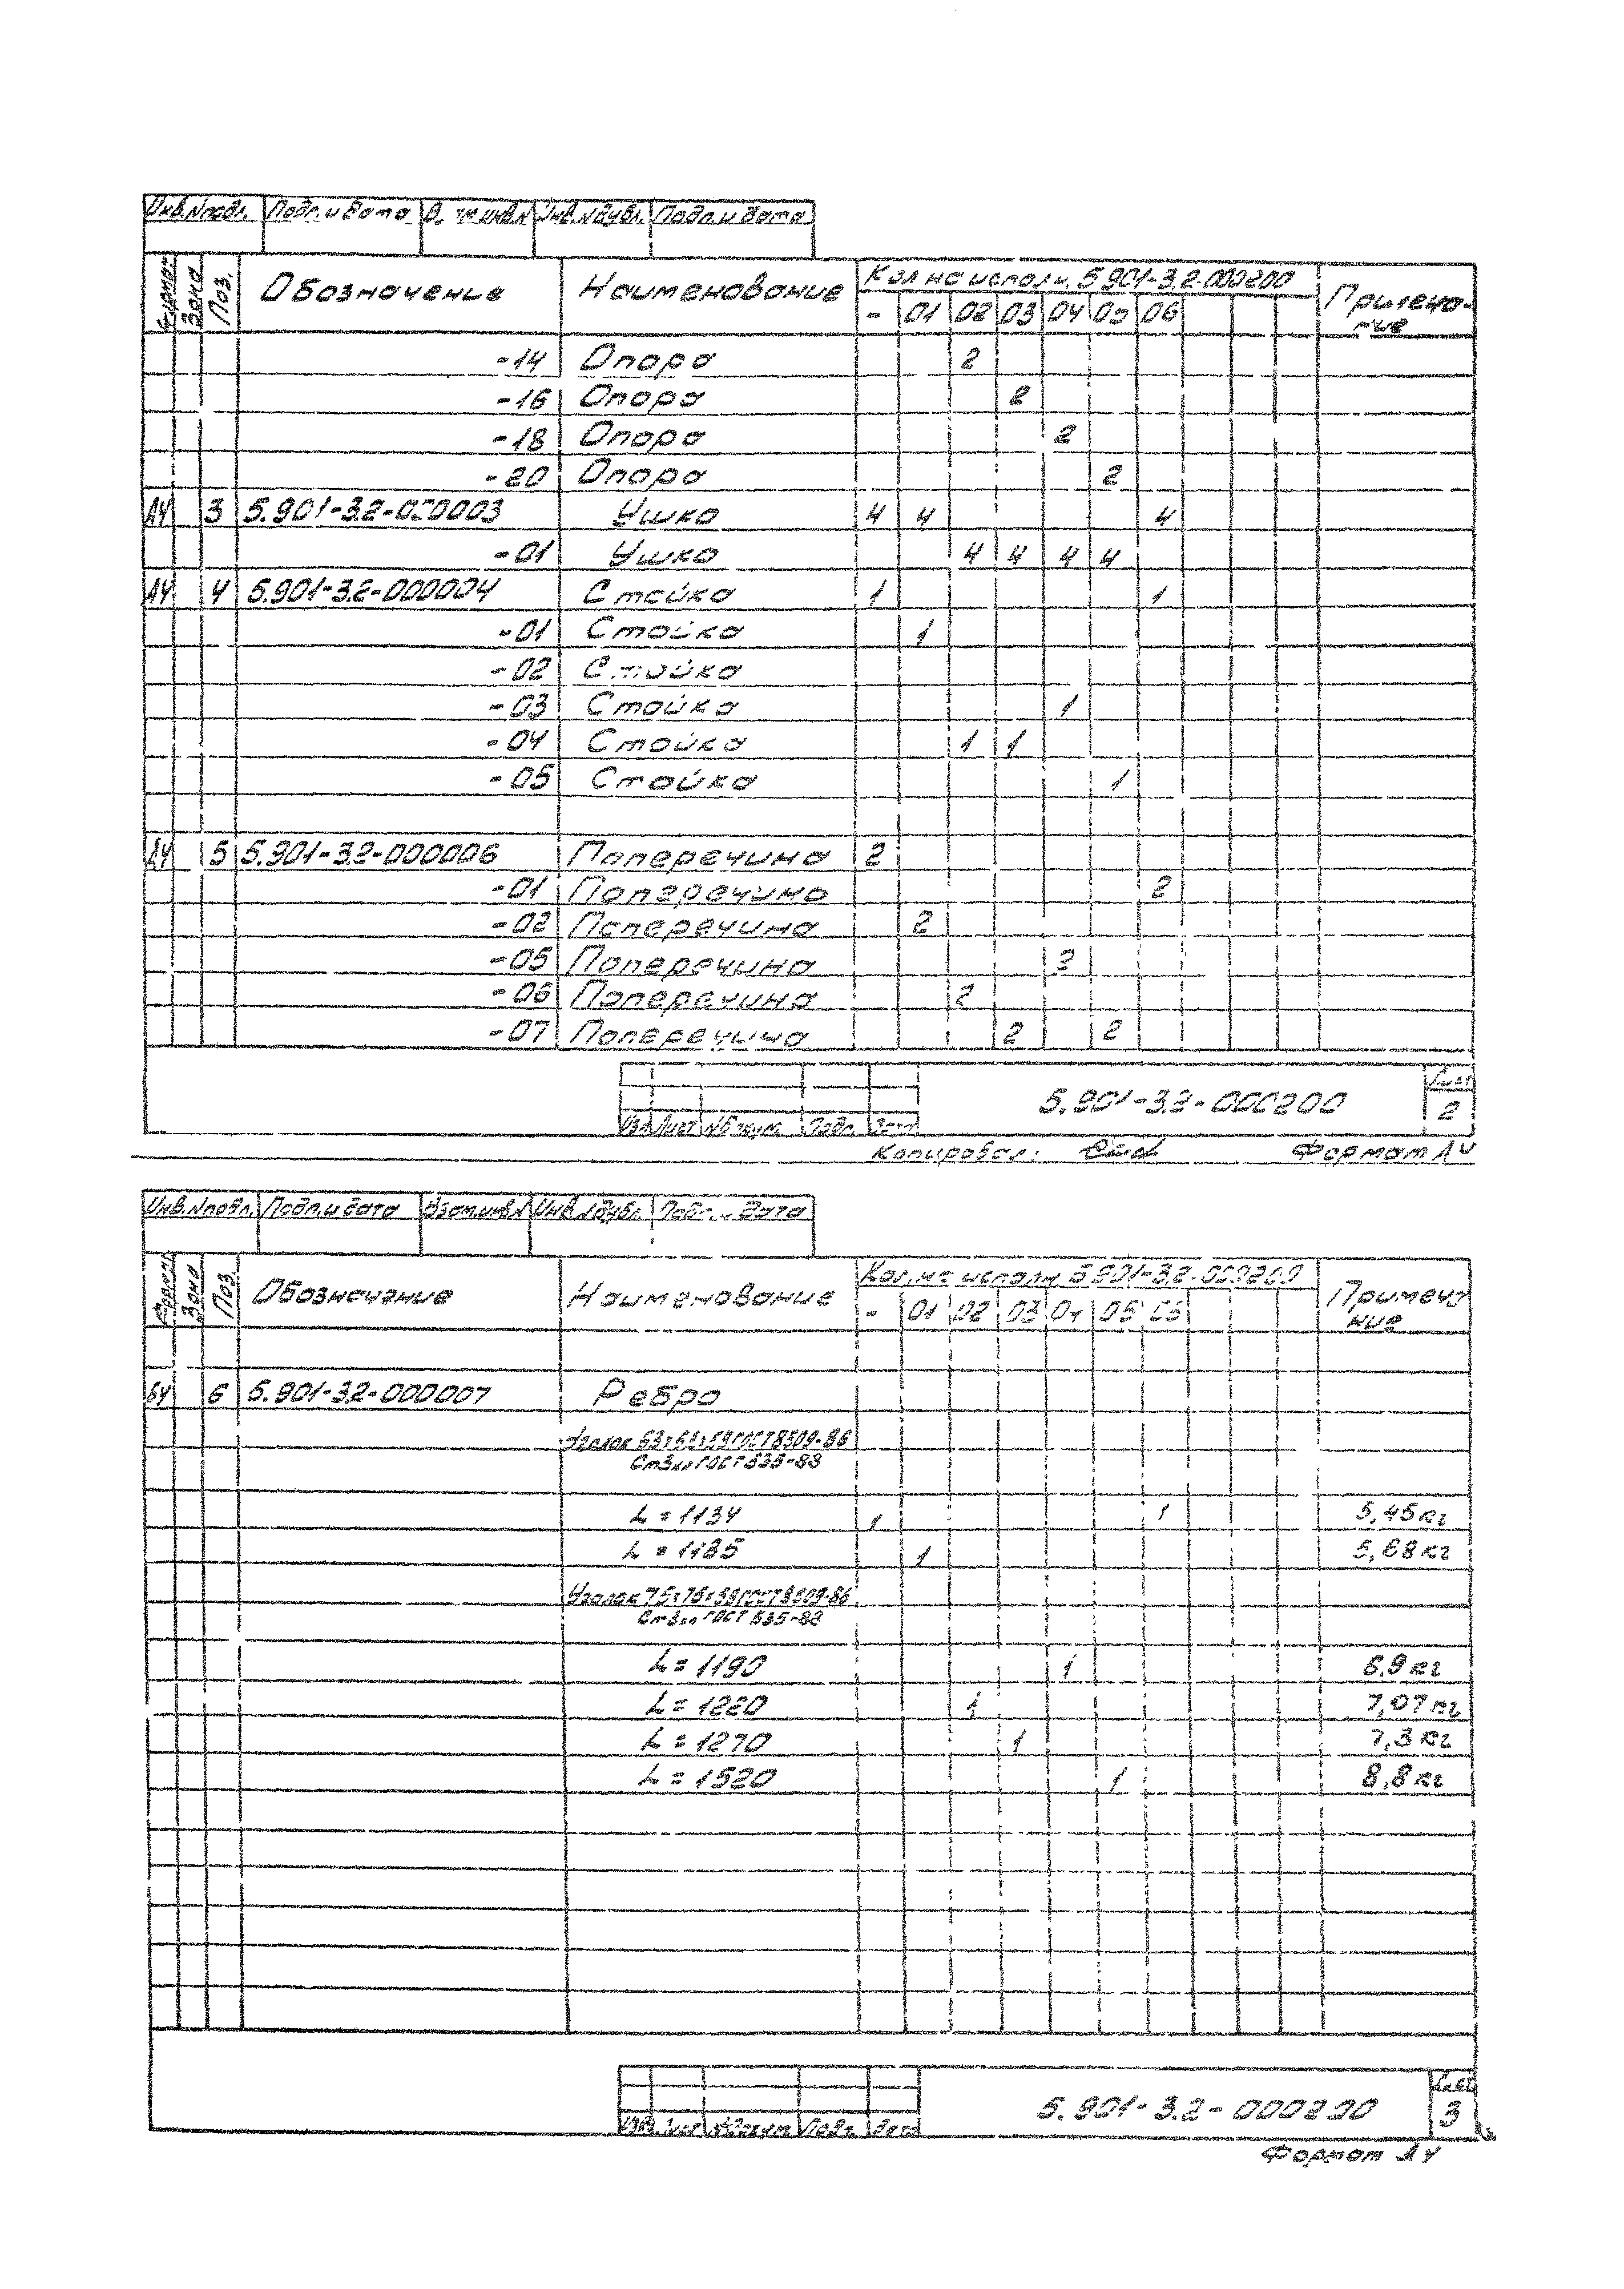 Инв.№подл. Подп. и дата Взам.инв.№ Инв.№дубл. Подп. и дата
Формат Зона Поз. Обозначение Наименование Кол. на исполн. 5.901-3.2-000200 Примеча-
ние
- 01 02 03 04 05 06
-14 Опора 2
-16 Опора 2
-18 Опора 2
-20 Опора 2
А4 3 5.901-3.2-000003 Ушко 4 4 4
-01 Ушко 4 4 4 4
А4 4 5.901-3.2-000004 Стойка 1 1
-01 Стойка 1
-02 Стойка
-03 Стойка 1
-04 Стойка 1 1
-05 Стойка 1
А4 5 5.901-3.2-000006 Поперечина 2
-01 Поперечина 2
-02 Поперечина 2
-05 Поперечина 2
-06 Поперечина 2
-07 Поперечина 2 2
5.901-3.2-000200 Лист
2
Изм. Лист № докум. Подп. Дата
Копировал: Формат А4
Инв.№подл. Подп. и дата Взам.инв.№ Инв.№дубл. Подп. и дата
Формат Зона Поз. Обозначение Наименование Кол. на исполн. 5.901-3.2-000200 Примеча
ние
- 01 02 03 04 05 06
БЧ 6 5.901-3.2-000007 Ребро
Уголок 63х63х5 ГОСТ 8509-86
Ст3кп ГОСТ 535-88
L = 1134 1 1 5,45кг
L = 1185 1 5,68кг
Уголок 75х75х5 ГОСТ 8509-86
Ст3кп ГОСТ 535-88
L = 1190 1 6,9кг
L = 1220 1 7,07кг
L = 1270 1 7,3кг
L = 1520 1 8,8кг
5.901-3.2-000200 Лист
3
Изм. Лист № докум. Подп. Дата
Формат А4